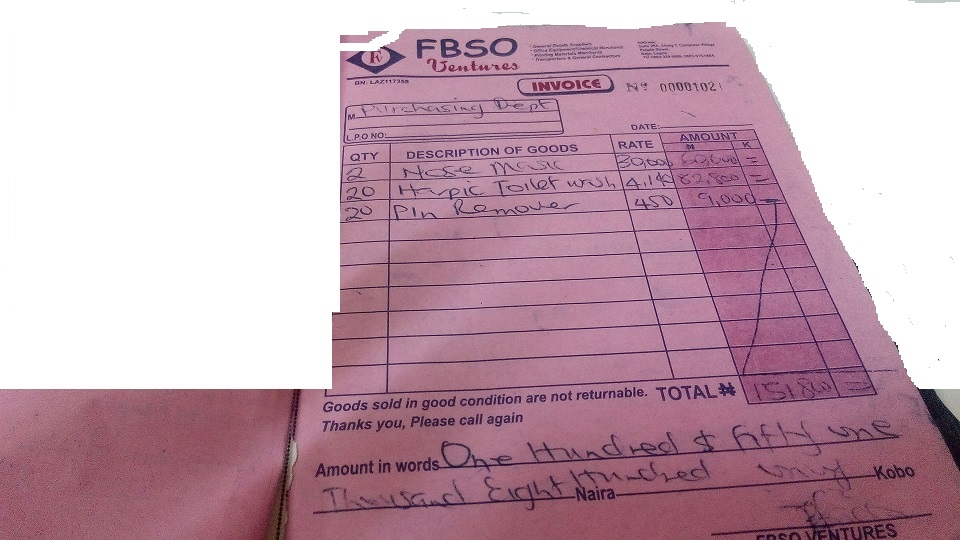 FBSO
Ventures
General Goods Suppliers
Office Equipment/Chemical Merchant
Printing Materials Merchants
Transporters & General Contractors
BN: LAZ117358
INVOICE
No 0000102
M Purchasing Dept
L.P.O NO:
DATE:
QTY DESCRIPTION OF GOODS RATE AMOUNT
₦ K
2 Nose Mask 30,000 60,000 =
20 Harpic Toilet wash 4,140 82,800 =
20 Pin Remover 450 9,000 =
Goods sold in good condition are not returnable. TOTAL ₦ 151,800 =
Thanks you, Please call again
Amount in words One Hundred & fifty one
Thousand Eight Hundred Naira only Kobo
FBSO VENTURES